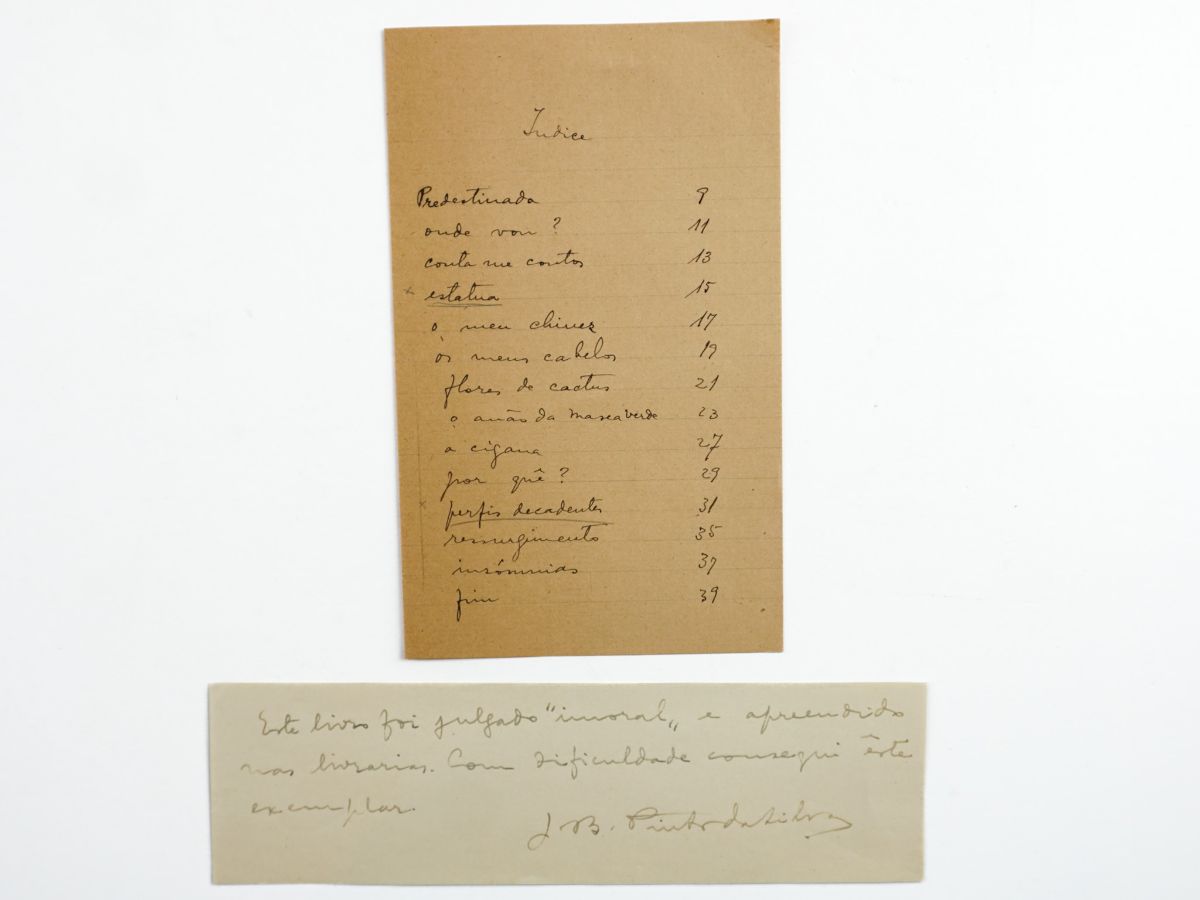 Índice
Predestinada 9
onde vou? 11
conta me contos 13
x estatua 15
o meu chinez 17
os meus cabelos 19
flores de cactus 21
o anão da mascaverde 23
a cigana 27
por quê? 29
x perfis decadentes 31
ressurgimento 35
insómnias 37
fim 39
Este livro foi julgado "imoral" e apreendido
nas livrarias. Com dificuldade consegui êste
exemplar.
J. B. Pinto da Silva